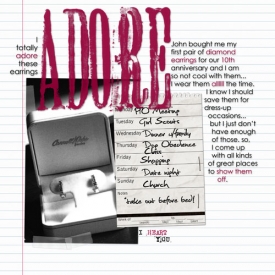 I
totally
adore
these
earrings
ADORE
John bought me my
first pair of diamond
earrings for our 10th
anniversary and I am
so not cool with them...
I wear them allllll the time.
I know I should
save them for
dress-up
occasions...
but I just don't
have enough
of those, so,
I come up
with all kinds
of great places
to show them
off.
PTO Meeting
Tuesday Girl Scouts
Wednesday Dinner w/family
Thursday Dog Obedience
Class
Friday Shopping
Saturday Date night
Sunday Church
Notes
*take out before bed!
I HEART
YOU